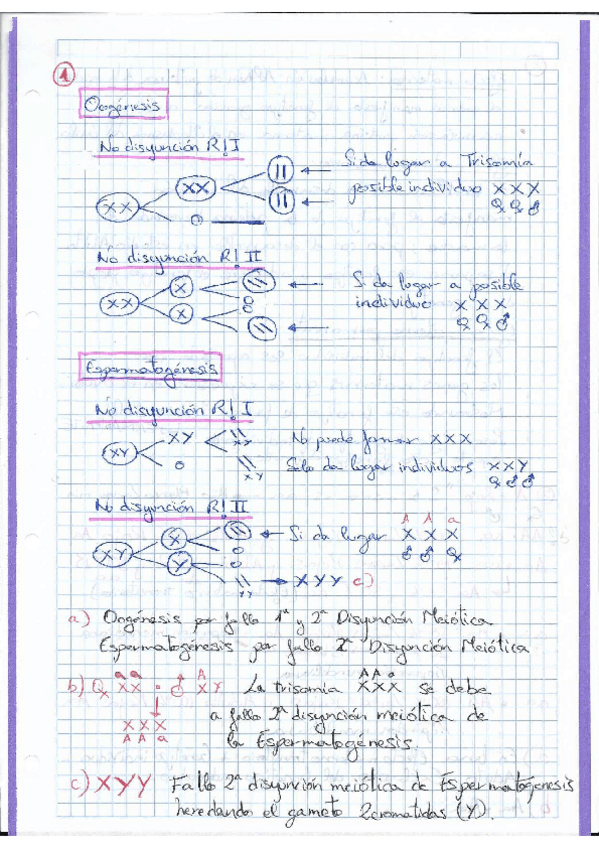 1
Oogénesis
No disyunción R! I
XX
XX
Si da lugar a Trisomía
posible individuo X X X
♀ ♀ ♂
No disyunción R! II
XX
X
X
Si da lugar a posible
individuo X X X
♀ ♀ ♂
Espermatogénesis
No disyunción R! I
XY
XY
XY
XY
No puede formar XXX
Solo da lugar individuos XXY
♀ ♂ ♂
No disyunción R! II
XY
X
Y
YY
A A a
Si da lugar X X X
♂ ♂ ♀
XYY c)
a) Oogénesis por fallo 1ª y 2ª Disyunción Meiótica
Espermatogénesis por fallo 2ª Disyunción Meiótica
a a A A A a
b) ♀ XX · ♂ XY La trisomia XXX se debe
a fallo 2ª disyunción meiótica de
X X X
A A a
la Espermatogénesis.
c) XYY Fallo 2ª disyunción meiótica de Espermatogénesis
heredando el gameto 2cromatidas (Y).